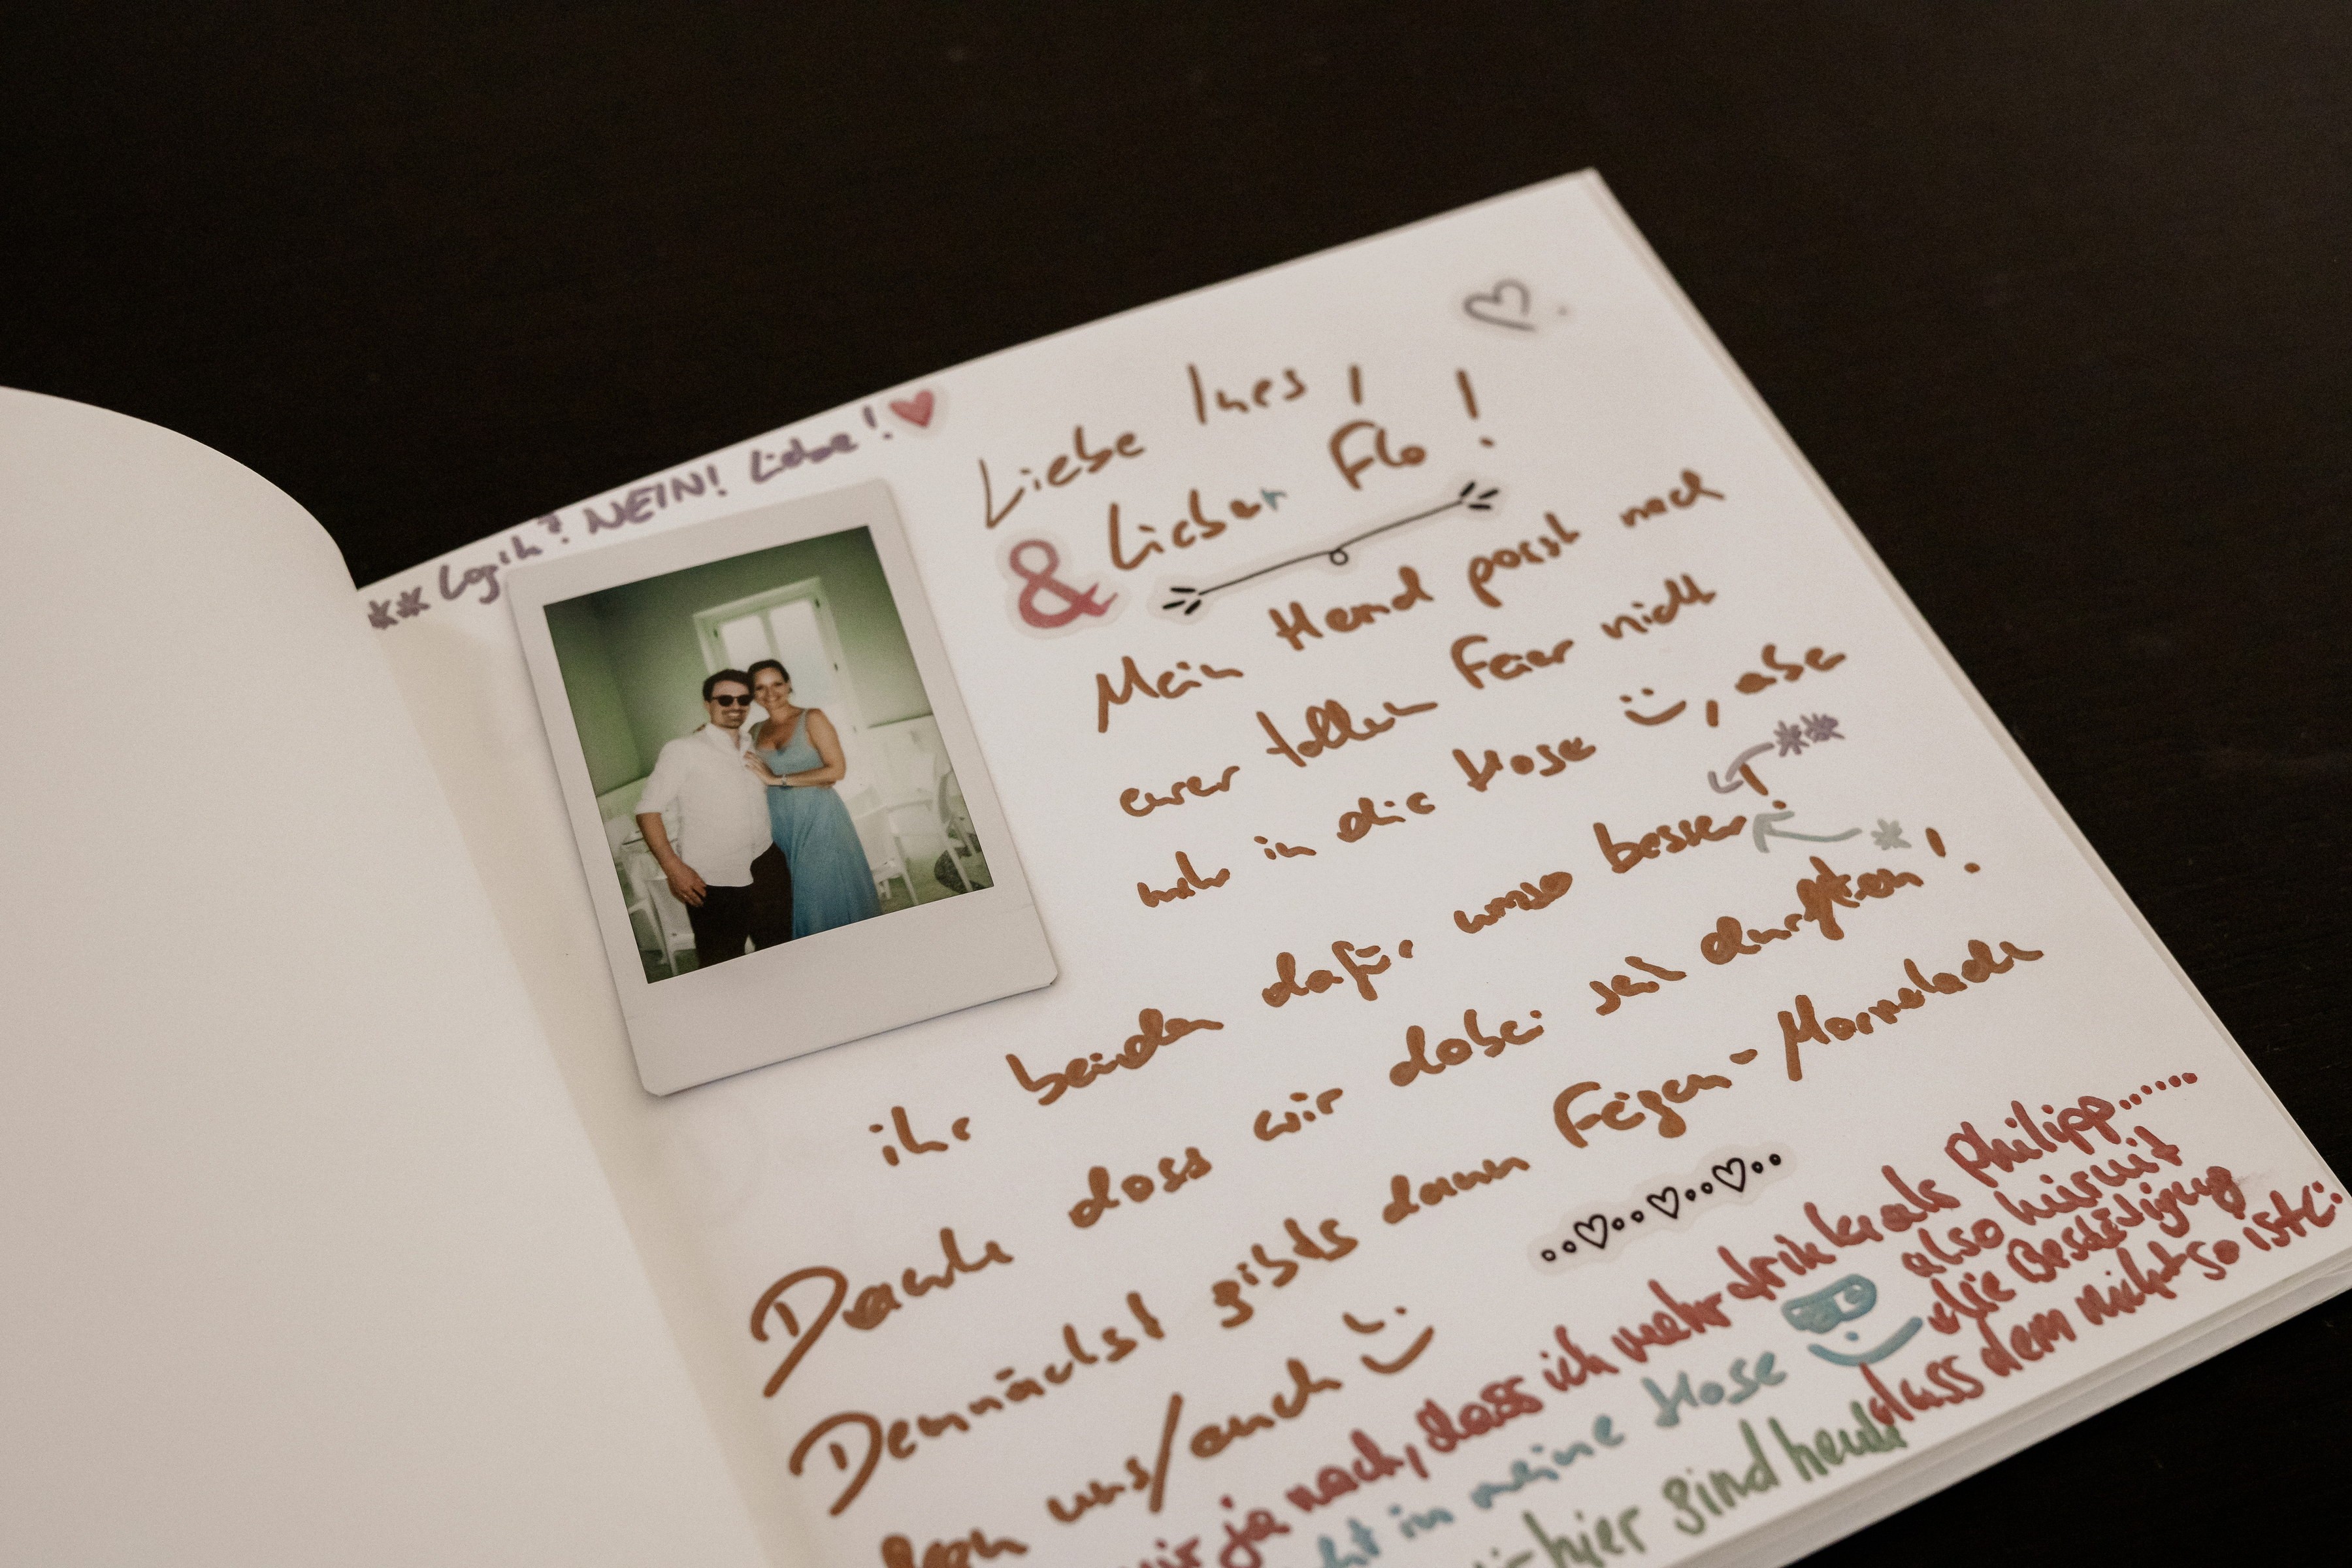 ** Logik? NEIN! Liebe!
Liebe Ines,
& Lieber Flo!
Mein Hemd passt nach
eurer tollen Feier nicht
mehr in die Hose , aber
**
ihr beiden dafür umso besser! *
Danke dass wir dabei sein durften!
Demnächst gibts dann Feigen-Marmelade
uns/euch
ja nach, dass ich mehr drinke als Philipp......
also hiermit
die Bestätigung
dass dem nicht so ist
in meine Hose
hier sind heute